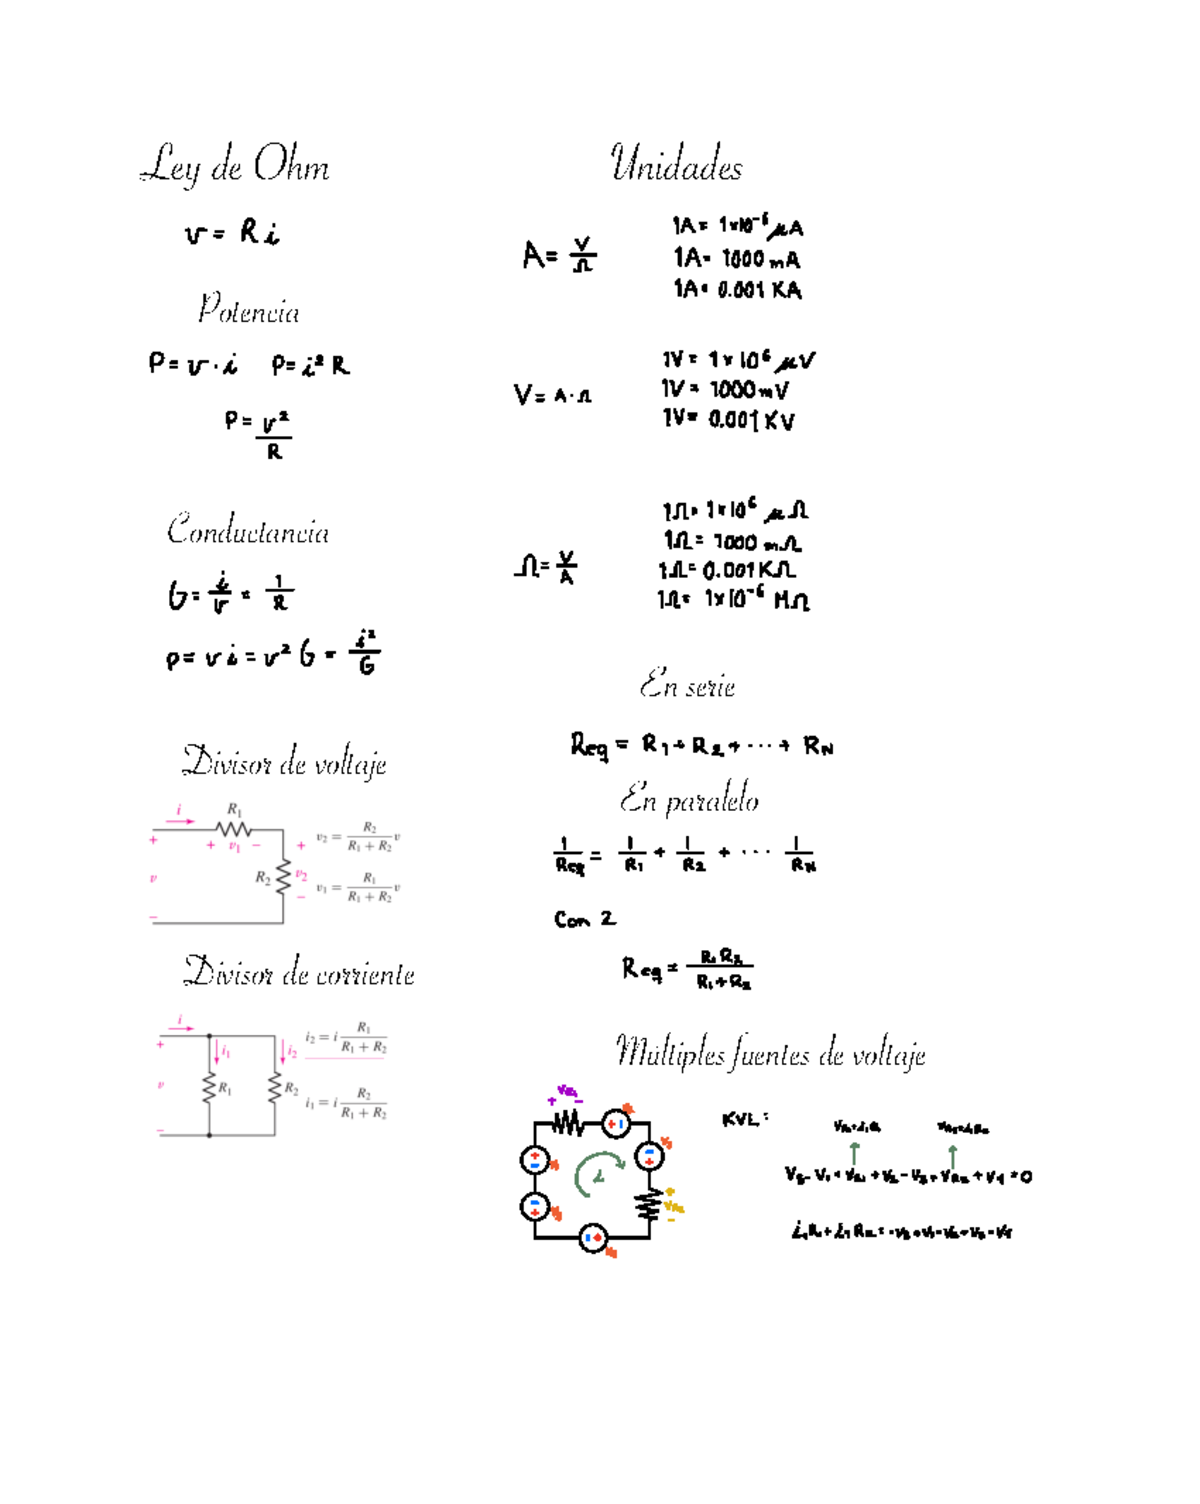 Ley de Ohm
v = R i
Potencia
P = v · i   P = i² R
P = v² / R
Conductancia
G = i / v = 1 / R
p = v i = v² G = i² / G
Divisor de voltaje
i R₁
+ + v₁ − +
v R₂ v₂
− −
v₂ = R₂ / (R₁ + R₂) v
v₁ = R₁ / (R₁ + R₂) v
Divisor de corriente
i
+ i₁ i₂
v R₁ R₂
−
i₂ = i R₁ / (R₁ + R₂)
i₁ = i R₂ / (R₁ + R₂)
Unidades
A = V / Ω
1A = 1x10⁻⁶ μA
1A = 1000 mA
1A = 0.001 KA
V = A · Ω
1V = 1 x 10⁶ μV
1V = 1000 mV
1V = 0.001 KV
Ω = V / A
1Ω = 1x10⁶ μΩ
1Ω = 1000 mΩ
1Ω = 0.001 KΩ
1Ω = 1x10⁻⁶ MΩ
En serie
Req = R₁ + R₂ + ··· + RN
En paralelo
1 / Req = 1 / R₁ + 1 / R₂ + ··· 1 / RN
Con 2
Req = R₁ R₂ / R₁ + R₂
Múltiples fuentes de voltaje
+ −
i
+
−
KVL: